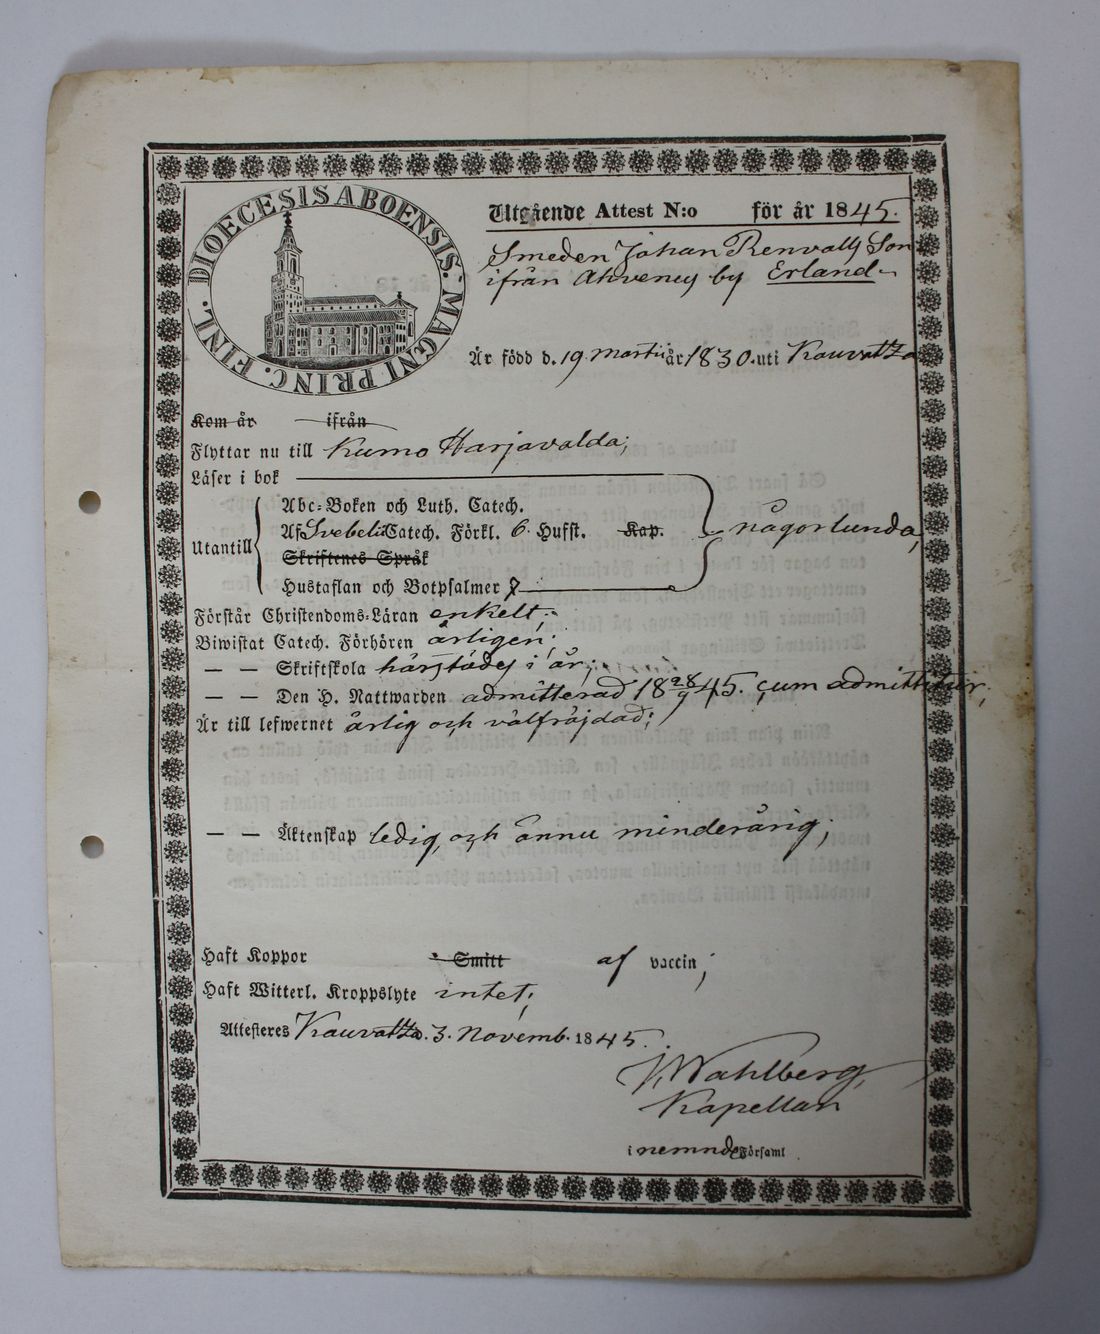 DIOECESIS ABOENSIS. MAGNI PRINC. FINL.
Utgående Attest N:o för år 1845.
Smeden Johan Renvalls Son
ifrån Ahvenus by Erland
Är född d. 19 Martii år 1830. uti Kauvatza
Kom år ifrån
Flyttar nu till Kumo Harjavalda;
Läser i bok
Abc-Boken och Luth. Catech.
Utantill
Af Svebelii Catech. Förkl. 6. Hufst. Kap.
någorlunda,
Skriftenes Språk
Hustaflan och Botpsalmer
Förstår Christendoms-Läran enkelt;
Biwistat Catech. Förhören årligen;
— — Skriftskola härstädes i år;
— — Den H. Nattwarden admitterad 18 28/9 45. cum admittitur;
Är till lefwernet ärlig och välfräjdad;
— — Äktenskap ledig, och ännu minderårig;
Haft Koppor Smitt af vaccin;
Haft Witterl. Kroppslyte intet;
Attesteres Kauvatza. 3. Novemb. 1845.
J. Wahlberg,
Kapellan
i nemnde Församl